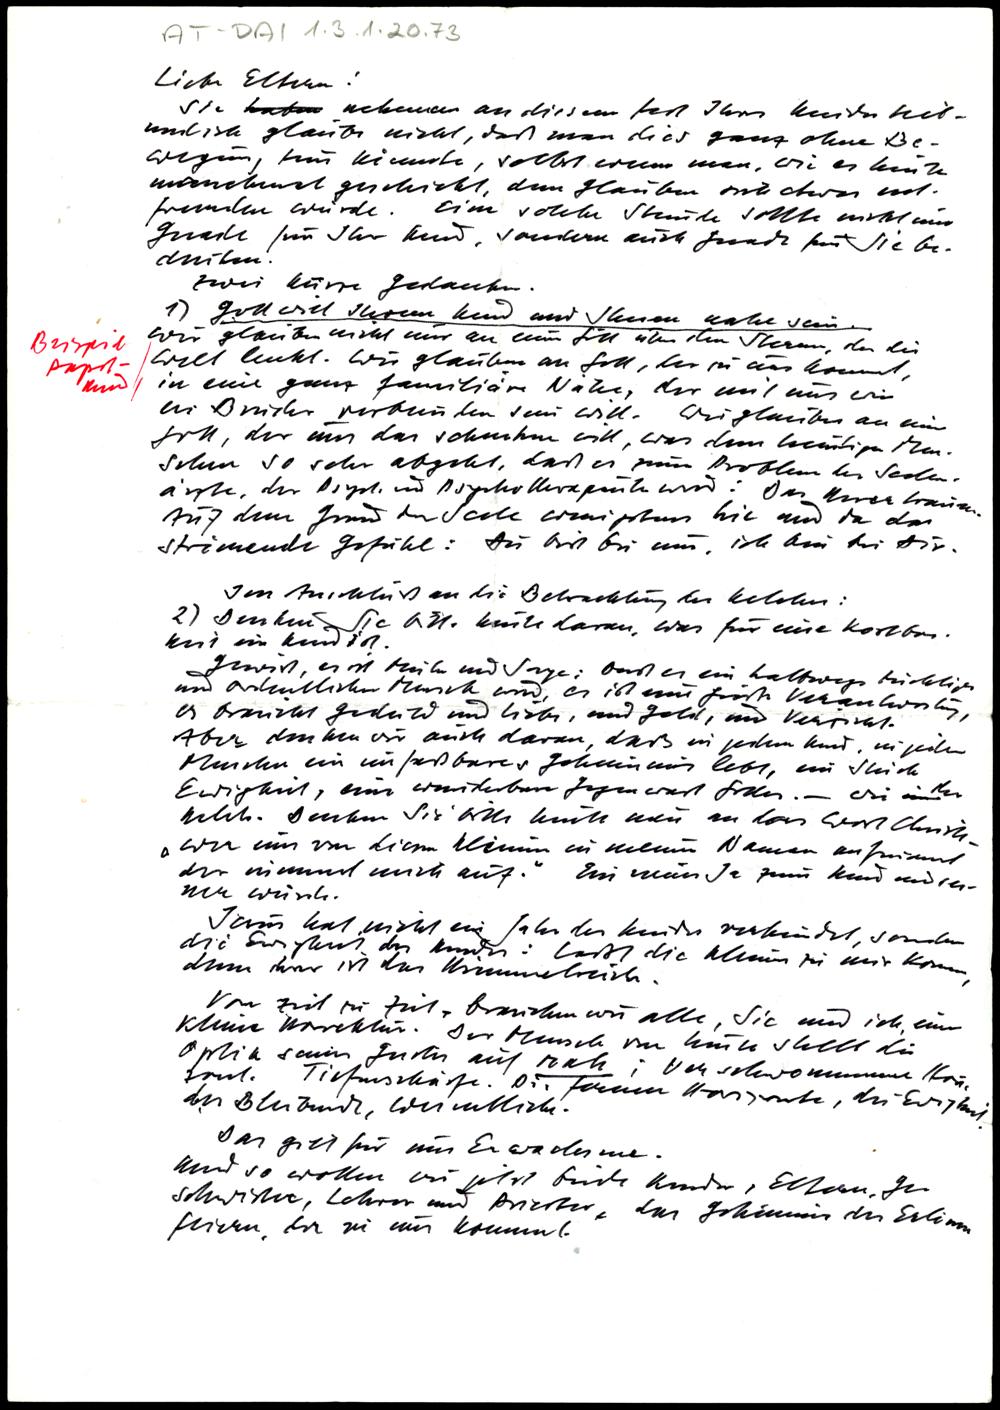 AT-DAI 1.3.1.20.73
Liebe Eltern!
Sie haben nehmen an diesem Fest Ihres Kindes teil-
und ich glaube nicht, daß man dies ganz ohne Be-
wegung tun könnte, selbst wenn man, wie es heute
manchmal geschieht, dem Glauben sich etwas ent-
fremden würde. Eine solche Stunde sollte nicht nur
Gnade für Ihr Kind, sondern auch Gnade für Sie be-
deuten.
Zwei kurze Gedanken.
1) Gott will Ihrem Kind und Ihnen nahe sein.
Wir glauben nicht nur an einen Gott über den Sternen, der die
Beispiel
Welt lenkt. Wir glauben an Gott, der zu uns kommt,
Kind
in eine ganz familiäre Nähe, der mit uns wie
ein Bruder verbunden sein will. Wir glauben an einen
Gott, der uns das schenken will, was dem heutigen Men-
schen so sehr abgeht, daß es zum Problem der Seelen-
ärzte, der Psych. und Psychotherapeuten wird: Das
Auf dem Grund der Seele wenigstens hie und da das
strömende Gefühl: Du bist bei mir, ich bin bei Dir.
Im Anschluß an die Betrachtung des Kelches:
2) Denken Sie bitte heute daran, was für eine Kostbar-
keit ein Kind ist.
Gewiß, es ist Mühe und Sorge; daß es ein halbwegs tüchtiger
und ordentlicher Mensch wird, es ist eine große Verantwortung,
es braucht Geduld und Liebe, und Geld, und Verzicht.
Aber denken wir auch daran, daß in jedem Kind, in jedem
Menschen ein unfaßbares Geheimnis lebt, ein Stück
Ewigkeit, eine wunderbare Gegenwart Gottes. – Wie in der
Kelch. Denken Sie bitte heute neu an das Wort Christi
"wer eins von diesen Kleinen in meinem Namen aufnimmt
der nimmt mich auf." Ein neues Ja zum Kind
Jesus hat nicht ein Jahr des Kindes verkündet, sondern
die Ewigkeit des Kindes: Laßt die Kleinen zu mir kommen,
denn ihrer ist das Himmelreich.
Von Zeit zu Zeit brauchen wir alle, Sie und ich, eine
kleine Korrektur. Der Mensch von heute stellt die
Optik seines Geistes auf nah; Verschwommener Hori-
zont. Tiefenschärfe. Die fernen Horizonte, die Ewigkeit!
das Bleibende, Wesentliche.
Das gilt für uns Erwachsene.
Und so wollen wir jetzt beide Kinder, Eltern, Ge-
schwister, Lehrer und Priester, das Geheimnis des Erlösers
feiern, der zu uns kommt.